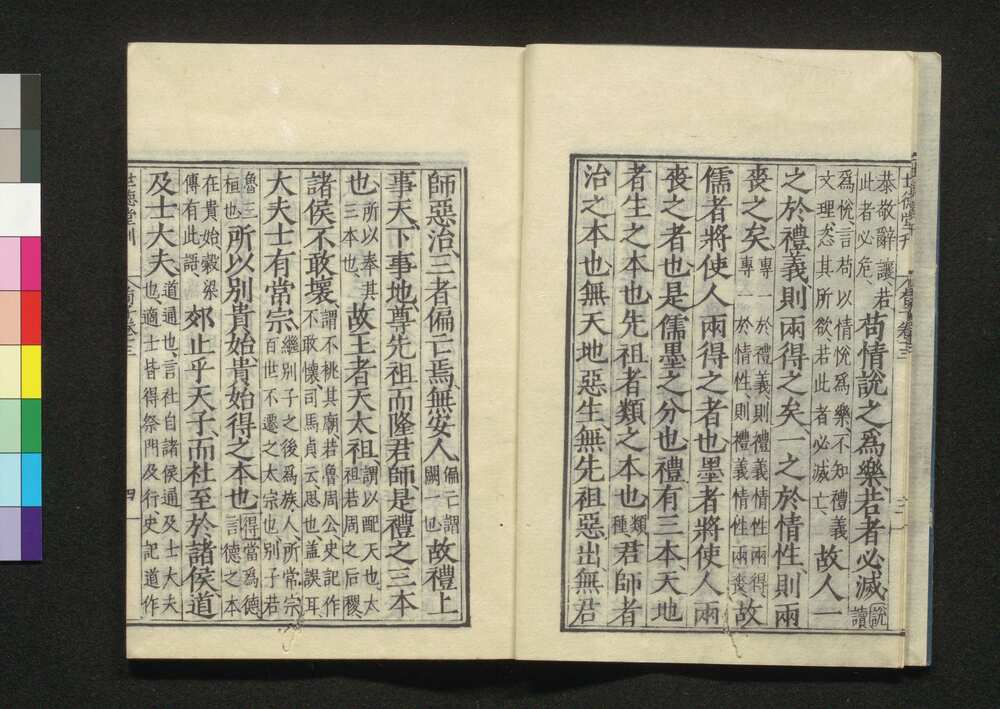 恭敬辭讓若
此者必危苟情說之爲樂若者必滅說讀
爲悅言苟以情悅爲樂不知禮義
文理恣其所欲若此者必滅亡故人一
之於禮義則兩得之矣一之於情性則兩
喪之矣專一於禮義則禮義情性兩得
專一於情性則禮義情性兩喪故
儒者將使人兩得之者也墨者將使人兩
喪之者也是儒墨之分也禮有三本天地
者生之本也先祖者類之本也類種君師者
治之本也無天地惡生無先祖惡出無君
師惡治三者偏亡焉無安人偏亡謂闕一也故禮上
事天下事地尊先祖而隆君師是禮之三本
也所以奉其三本也故王者天太祖謂以配天也太祖若周之后稷
諸侯不敢壞謂不祧其廟若魯周公史記作不敢懷司馬貞云思也蓋誤耳
大夫士有常宗繼別子之後爲族人所常宗百世不遷之大宗也別子若
魯三桓也所以別貴始貴始得之本也得當爲德言德之本
在貴始穀梁傳有此語郊止乎天子而社至於諸侯道
及士大夫道通也言社自諸侯通及士大夫也適士皆得祭門及行史記道作
世德堂刊
四